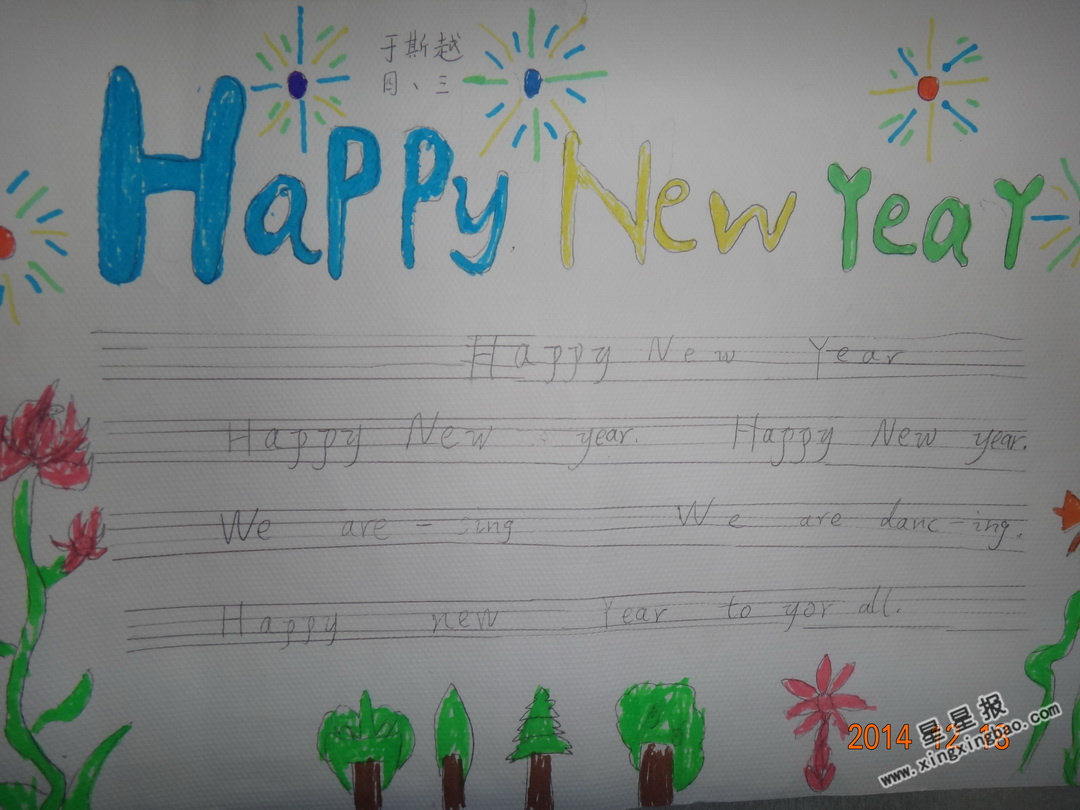 于斯越
四、三
Happy New Year
Happy New Year
Happy New year. Happy New year.
We are - sing We are danc-ing.
Happy new Year to yor all.
2014 12 18
星星报
www.xingxingbao.com